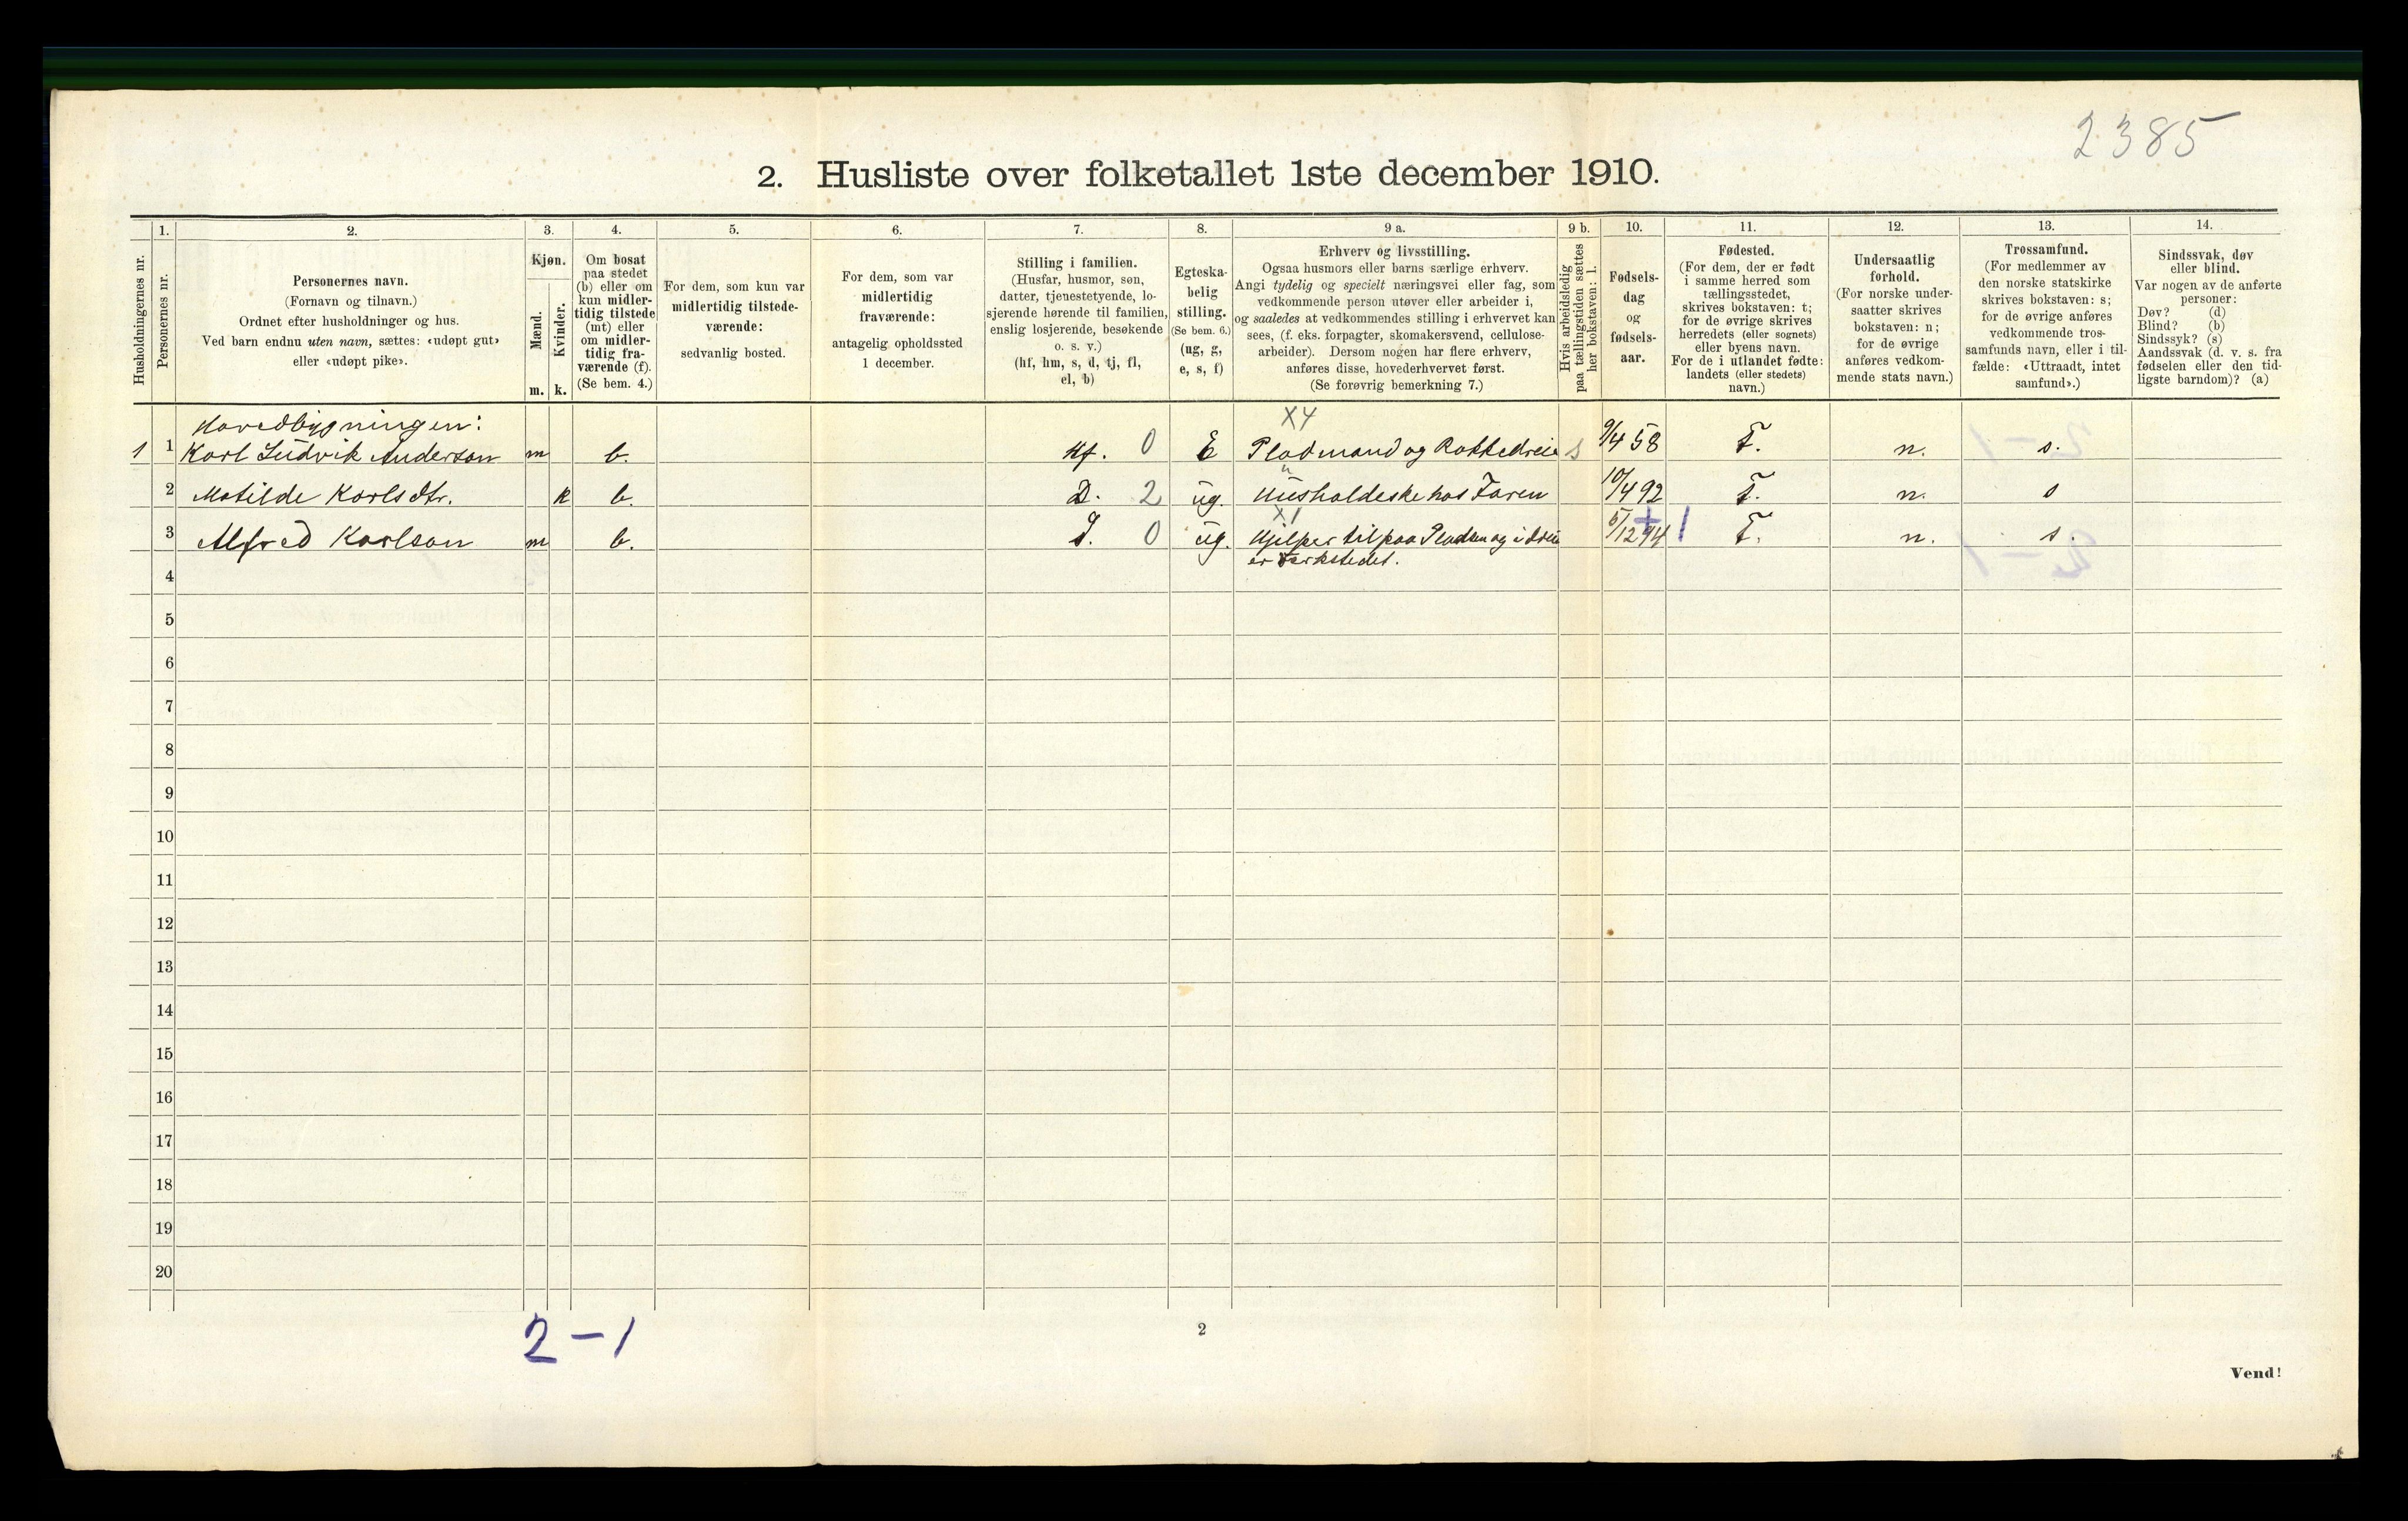 2385
2. Husliste over folketallet 1ste december 1910.
Husholdningernes nr.
1.
Personernes nr.
2.
Personernes navn.
(Fornavn og tilnavn.)
Ordnet efter husholdninger og hus.
Ved barn endnu uten navn, sættes: «udøpt gut»
eller «udøpt pike».
3.
Kjøn.
Mænd.
Kvinder.
m. k.
4.
Om bosat
paa stedet
(b) eller om
kun midler-
tidig tilstede
(mt) eller
om midler-
tidig fra-
værende (f).
(Se bem. 4.)
5.
For dem, som kun var
midlertidig tilstede-
værende:
sedvanlig bosted.
6.
For dem, som var
midlertidig
fraværende:
antagelig opholdssted
1 december.
7.
Stilling i familien.
(Husfar, husmor, søn,
datter, tjenestetyende, lo-
sjerende hørende til familien,
enslig losjerende, besøkende
o. s. v.)
(hf, hm, s, d, tj, fl,
el, b)
8.
Egteska-
belig
stilling.
(Se bem. 6.)
(ug, g,
e, s, f)
9 a.
Erhverv og livsstilling.
Ogsaa husmors eller barns særlige erhverv.
Angi tydelig og specielt næringsvei eller fag, som
vedkommende person utøver eller arbeider i,
og saaledes at vedkommendes stilling i erhvervet kan
sees, (f. eks. forpagter, skomakersvend, cellulose-
arbeider). Dersom nogen har flere erhverv,
anføres disse, hovederhvervet først.
(Se forøvrig bemerkning 7.)
9 b.
Hvis arbeidsledig
paa tællingstiden sættes
her bokstaven: l.
10.
Fødsels-
dag
og
fødsels-
aar.
11.
Fødested.
(For dem, der er født
i samme herred som
tællingsstedet,
skrives bokstaven: t;
for de øvrige skrives
herredets (eller sognets)
eller byens navn.
For de i utlandet fødte:
landets (eller stedets)
navn.)
12.
Undersaatlig
forhold.
(For norske under-
saatter skrives
bokstaven: n;
for de øvrige
anføres vedkom-
mende stats navn.)
13.
Trossamfund.
(For medlemmer av
den norske statskirke
skrives bokstaven: s;
for de øvrige anføres
vedkommende tros-
samfunds navn, eller i til-
fælde: «Uttraadt, intet
samfund».)
14.
Sindssvak, døv
eller blind.
Var nogen av de anførte
personer:
Døv? (d)
Blind? (b)
Sindssyk? (s)
Aandssvak (d. v. s. fra
fødselen eller den tid-
ligste barndom)? (a)
Hovedbygningen: X4
1 1 Karl Ludvik Anderson m b. Hf. 0 E Pladmand og Rokkedreies 9/4 58 T. n. s.
2 Matilde Karlsdtr. k b. D. 2 ug. Husholdeske hos Faren 10/4 92 T. n. s
X1
3 Alfred Karlson m b. S. 0 ug. Hjelper til paa Pladsen og i Drei 5/12 94 1 T. n. s.
er verkstedet.
4
5
6
7
8
9
10
11
12
13
14
15
16
17
18
19
20
2-1
2
Vend!